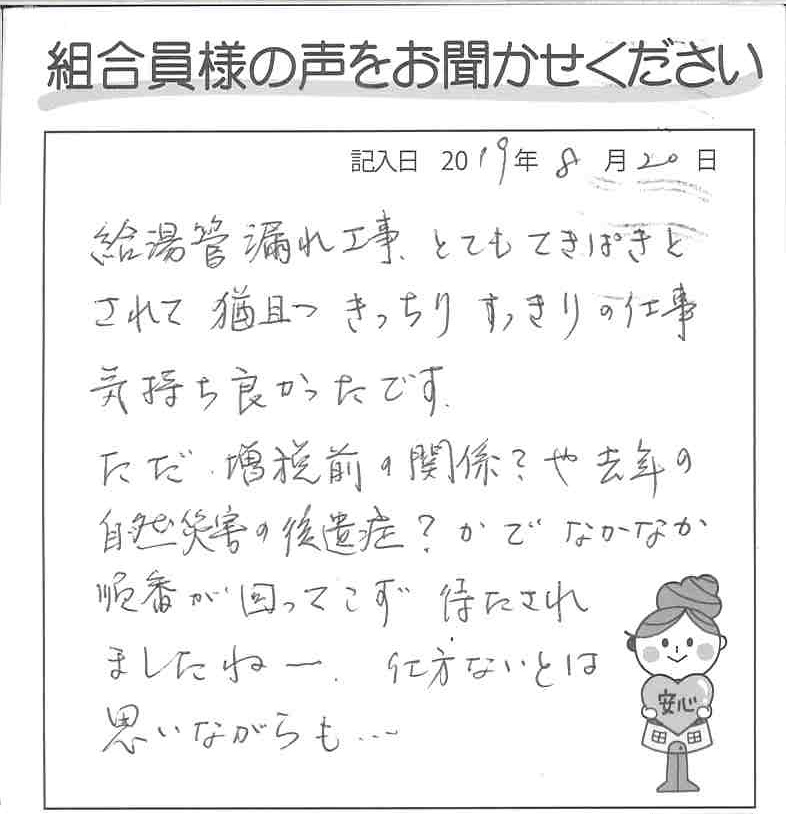 組合員様の声をお聞かせください
記入日 2019年 8 月 20 日
給湯管漏れ工事、とてもてきぱきと
されて 猶且つ きっちり すっきりの仕事
気持ち良かったです.
ただ、増税前の関係？や去年の
自然災害の後遺症？かで なかなか
順番が回ってこず 待たされ
ましたねー. 仕方ないとは
思いながらも…
安心